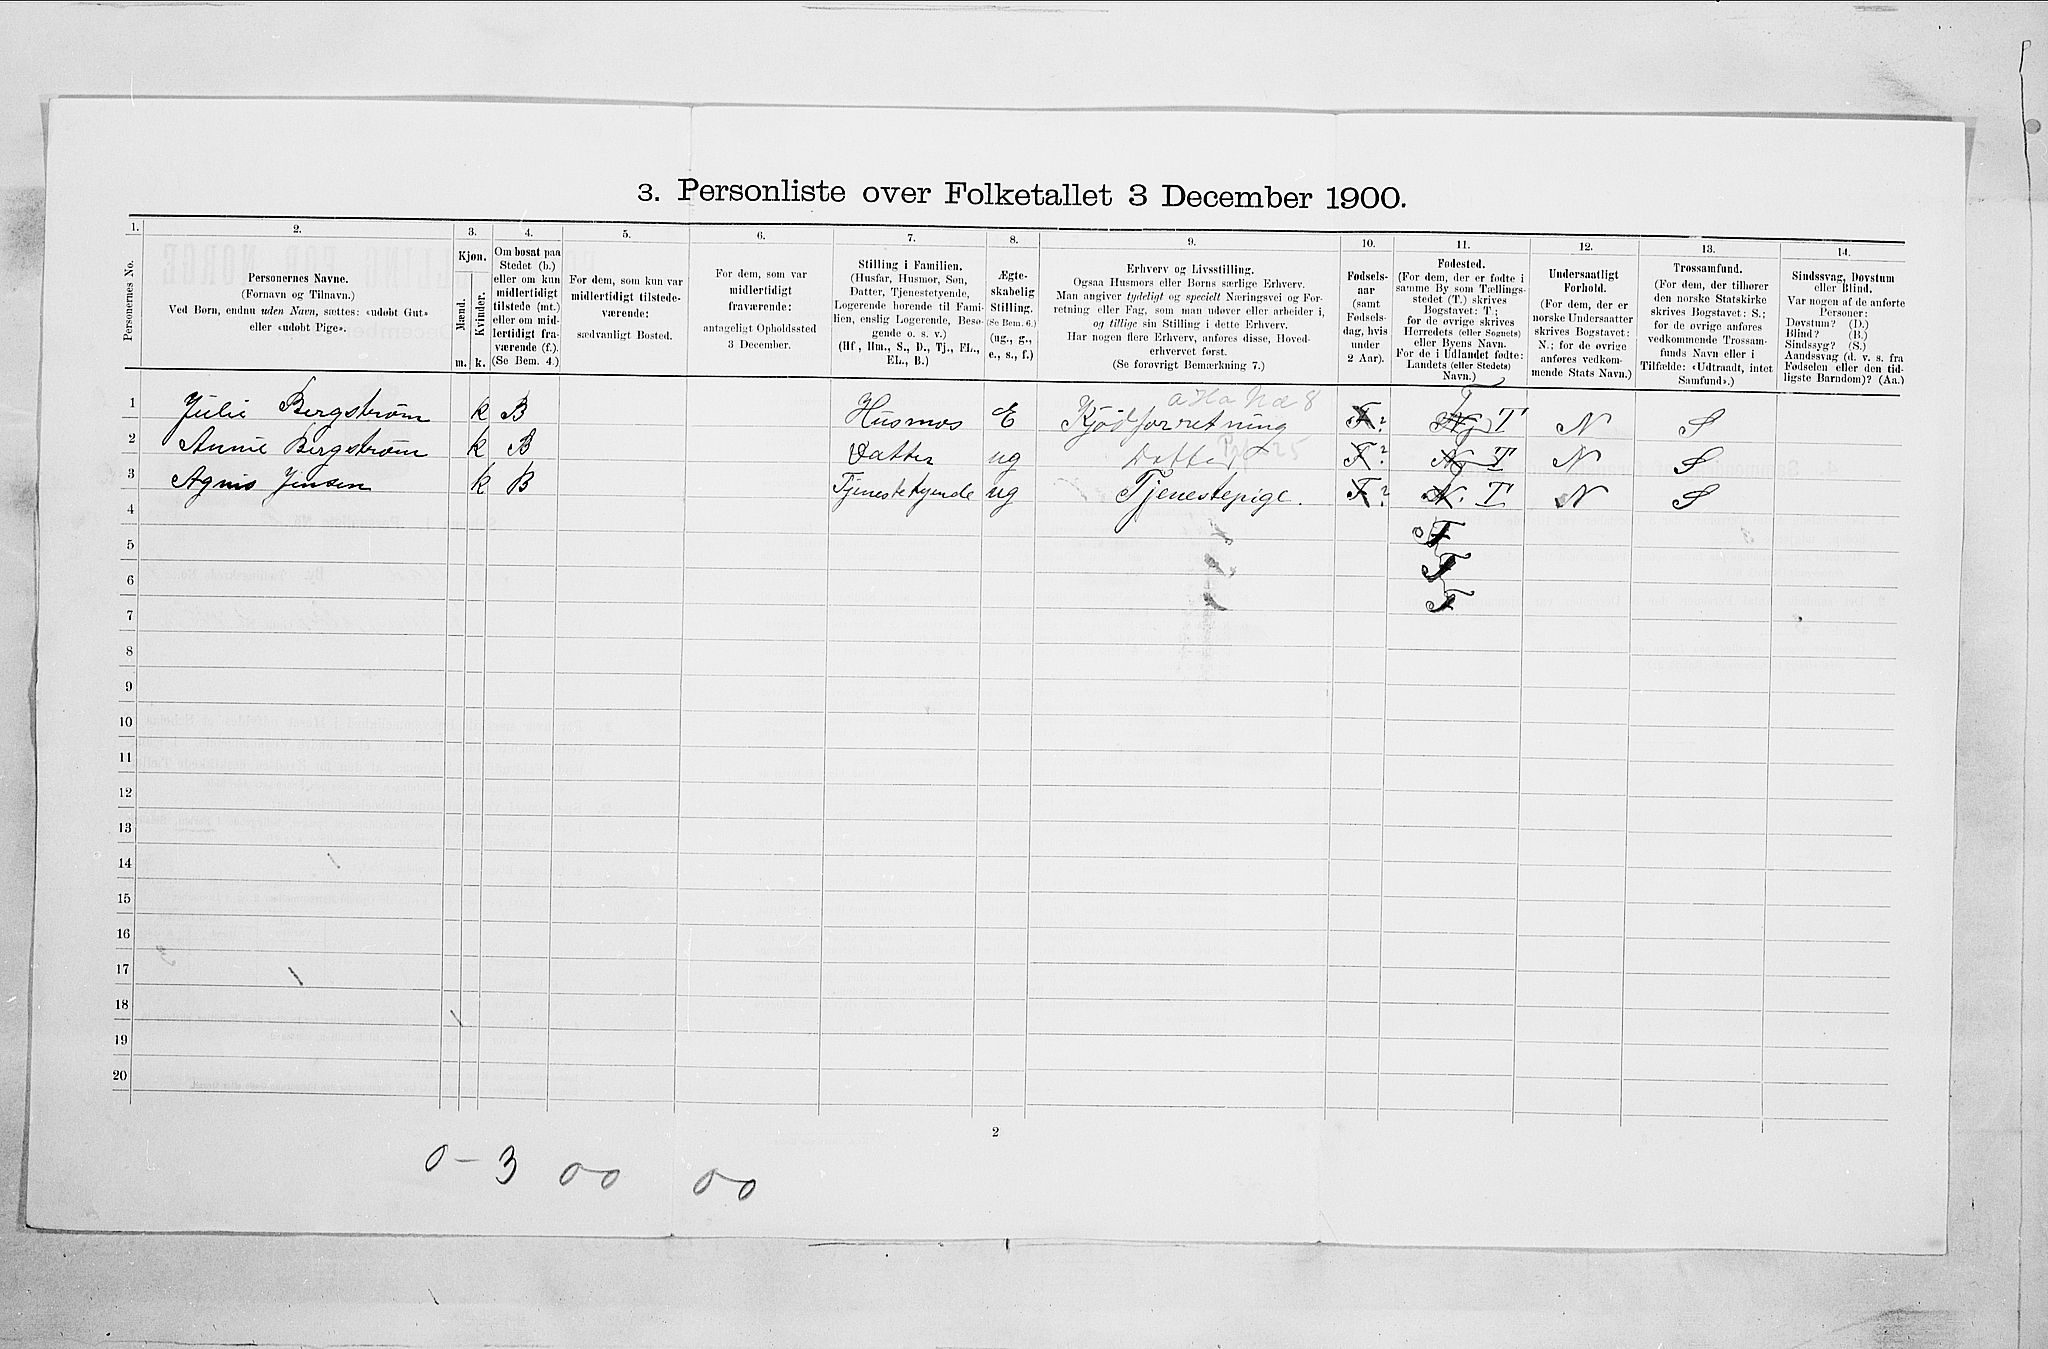 3. Personliste over Folketallet 3 December 1900.
1. 2. 3. 4. 5. 6. 7. 8. 9. 10. 11. 12. 13. 14.
Personernes No.
Personernes Navne.
(Fornavn og Tilnavn.)
Ved Børn, endnu uden Navn, sættes: «udøbt Gut»
eller «udøbt Pige».
Kjøn.
Mænd.
Kvinder.
m. k.
Om bosat paa
Stedet (b.)
eller om kun
midlertidigt
tilstede (mt.)
eller om mid-
lertidigt fra-
værende (f.).
(Se Bem. 4.)
For dem, som kun var
midlertidigt tilstede-
værende:
sædvanligt Bosted.
For dem, som var
midlertidigt
fraværende:
antageligt Opholdssted
3 December.
Stilling i Familien.
(Husfar, Husmor, Søn,
Datter, Tjenestetyende,
Logerende hørende til Fami-
lien, enslig Logerende, Besø-
gende o. s. v.)
(Hf, Hm., S., D., Tj., FL.,
EL., B.)
Ægte-
skabelig
Stilling.
(Se Bem. 6.)
(ug., g.,
e., s., f.)
Erhverv og Livsstilling.
Ogsaa Husmors eller Børns særlige Erhverv.
Man angiver tydeligt og specielt Næringsvei og For-
retning eller Fag, som man udøver eller arbeider i,
og tillige sin Stilling i dette Erhverv.
Har nogen flere Erhverv, anføres disse, Hoved-
erhvervet først.
(Se forøvrigt Bemærkning 7.)
Fødsels-
aar
(samt
Fødsels-
dag, hvis
under
2 Aar).
Fødested.
(For dem, der er fødte i
samme By som Tællings-
stedet (T.) skrives
Bogstavet: T;
for de øvrige skrives
Herredets (eller Sognets)
eller Byens Navn.
For de i Udlandet fødte:
Landets (eller Stedets)
Navn.)
Undersaatligt
Forhold.
(For dem, der er
norske Undersaatter
skrives Bogstavet:
N.; for de øvrige
anføres vedkom-
mende Stats Navn.)
Trossamfund.
(For dem, der tilhører
den norske Statskirke
skrives Bogstavet: S.;
for de øvrige anføres
vedkommende Trossam-
funds Navn eller i
Tilfælde: «Udtraadt, intet
Samfund».)
Sindssvag, Døvstum
eller Blind.
Var nogen af de anførte
Personer:
Døvstum? (D.)
Blind? (B.)
Sindssyg? (S.)
Aandssvag (d. v. s. fra
Fødselen eller den tid-
ligste Barndom)? (Aa.)
1 Julie Bergstrøm k B Husmor E Kjødforretning F? T N S
2 Annie Bergstrøm k B Datter ug Datter F? T N S
3 Agnis Jensen k B Tjenestetyende ug Tjenestepige. F? N. T N S
4 T
5 T
6 T
7
8
9
10
11
12
13
14
15
16
17
18
19
20
2
0 - 3 00 00